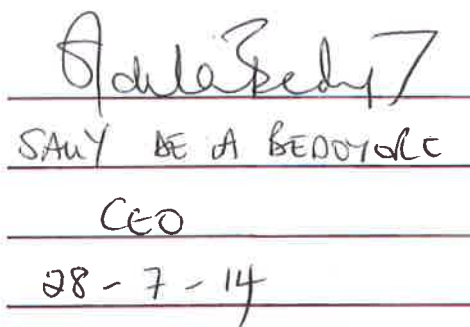 SALLY DE A BEDOYERE
CEO
28-7-14